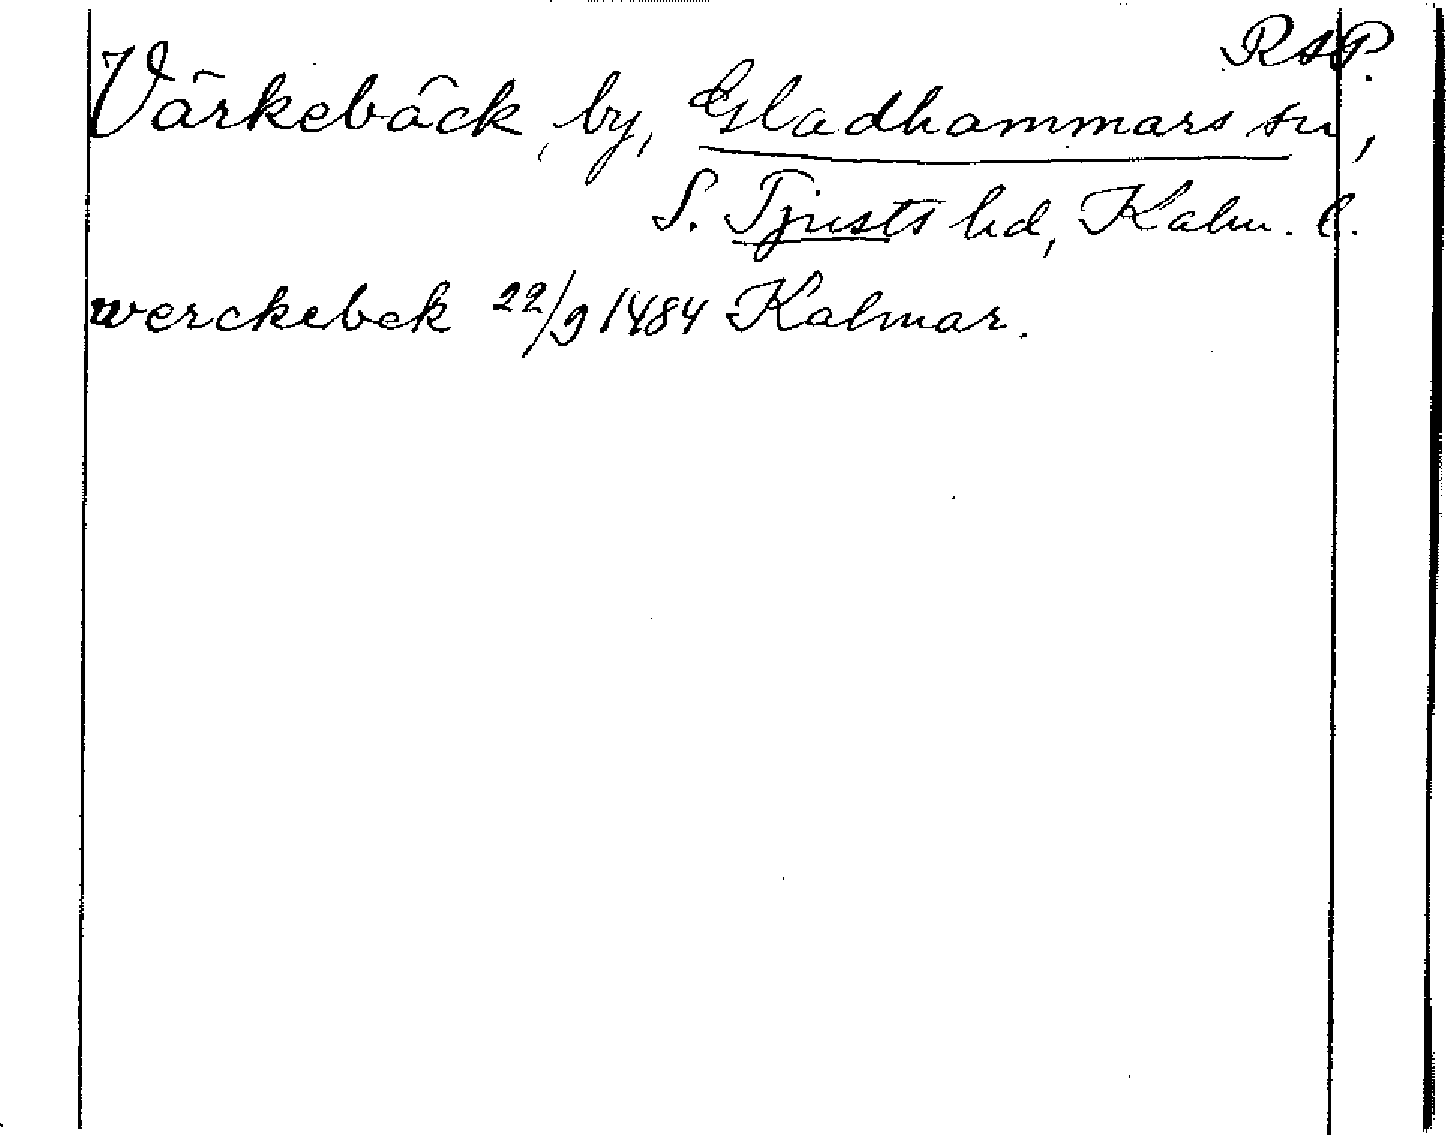 RAP.
Värkebäck, by, Gladhammars sn,
S. Tjusts hd, Kalm. l.
werckebek 22/9 1484 Kalmar.